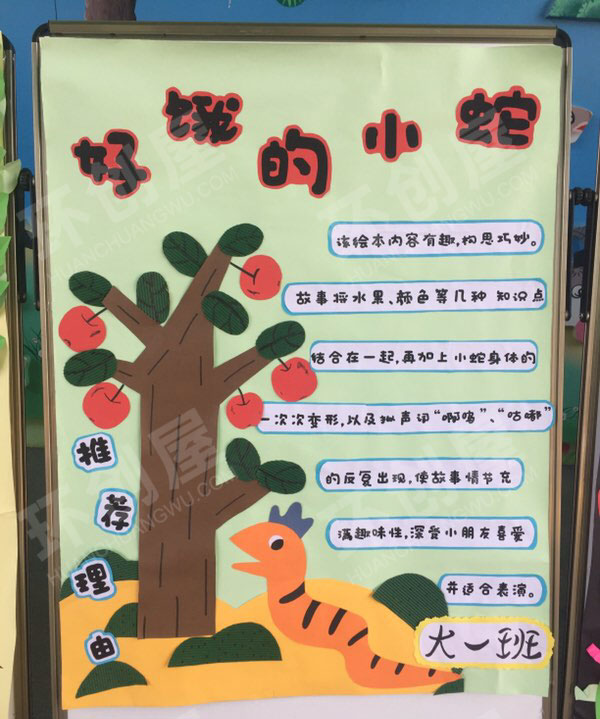 好饿的小蛇
该绘本内容有趣,构思巧妙。
故事将水果、颜色等几种 知识点
结合在一起,再加上小蛇身体的
一次次变形,以及拟声词“啊呜”、“咕嘟”
的反复出现,使故事情节充
满趣味性,深受小朋友喜爱
并适合表演。
推荐理由
大一班
环创屋
HUANCHUANGWU.COM